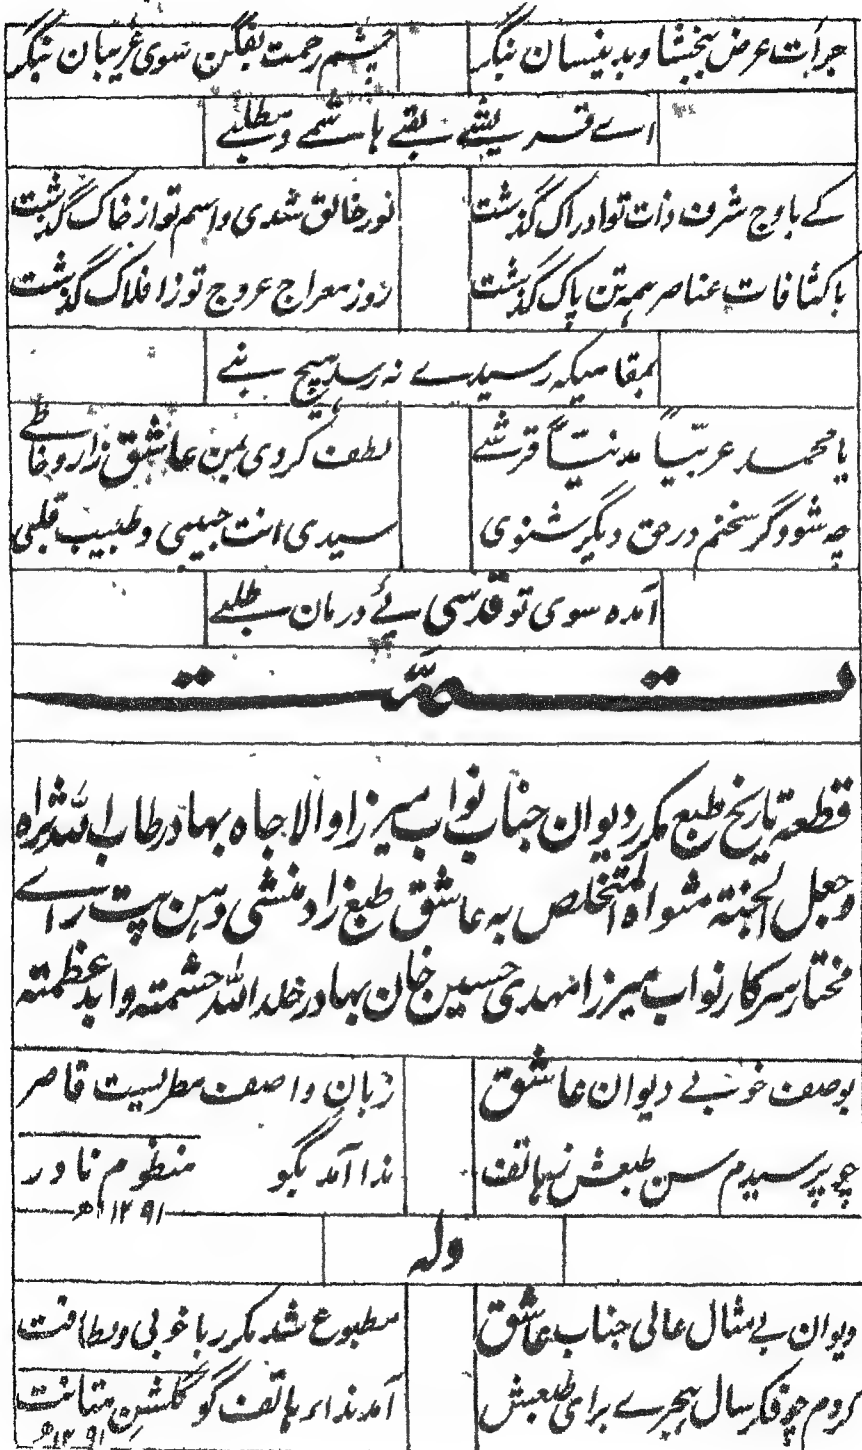 جرأت عرض ببخشا و بد ینسان بنگر چشم رحمت بفگن سوی غریبان بنگر
اے قریشے لقبے ہاشمے و مطلبے
کے باوج شرف ذات تو ادراک گذشت نور خالق شدی و اسم تو از خاک گذشت
با کثافات عناصر همه تن پاک گذشت روز معراج عروج تو ز افلاک گذشت
بمقامیکه رسیدے نه رسد هیچ نبے
یا محمد عربیّاً مدنیّاً قرشے لطف کردی بمن عاشق زار و خاطے
چه شود گر سخنم در حق دیگر شنوی سیدی انت حبیبی و طبیب قلبی
آمده سوی تو قدسی پئے درمان طلبے
تمّت
قطعه تاریخ طبع مکرر دیوان جناب نواب میرزا والا جاه بہادر طاب اللہ ثراه
وجعل الجنته مثواه المتخلص به عاشق طبغ زاد منشی دہن پت راے
مختار سرکار نواب میرزا مہدی حسین خان بہادر خلد اللہ حشمته وابد عظمته
بوصف خوبے دیوان عاشق زبان واصف مطریست قاصر
چو پرسیدم سن طبعش ز ہاتف ندا آمد بگو منظوم نادر
۱۲۹۱ھ
وله
دیوان بے مثال عالی جناب عاشق مطبوع شد مکرر با خوبی و لطافت
کردم چو فکر سال ہجرے برای طبعش آمد ندا ز ہاتف گو گلشن متانت
۱۲۹۱ھ